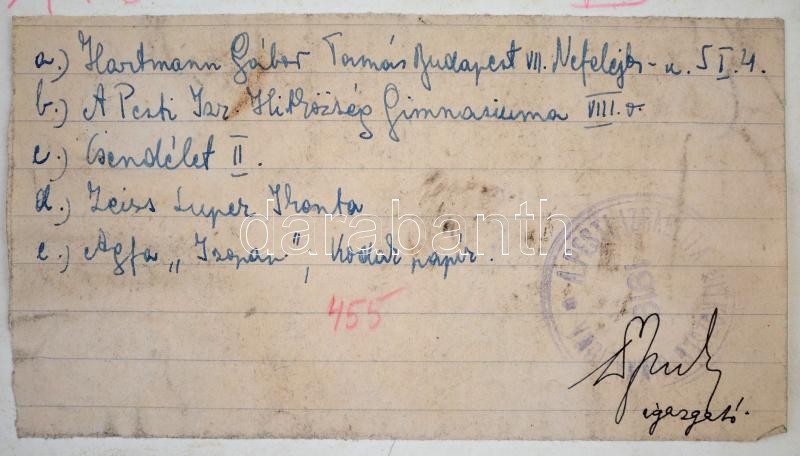 a.) Hartmann Gábor Tamás Budapest VII. Nefelejts-u. 5 I. 4.
b.) A Pesti Izr. Hitközség Gimnasiuma VIII. o.
c.) Csendélet II.
d.) Zeiss Super Ikonta
darabanth
e.) Agfa „Isopan", Kodak papír.
455
A PESTI IZRAELITA
1919
igazgató.